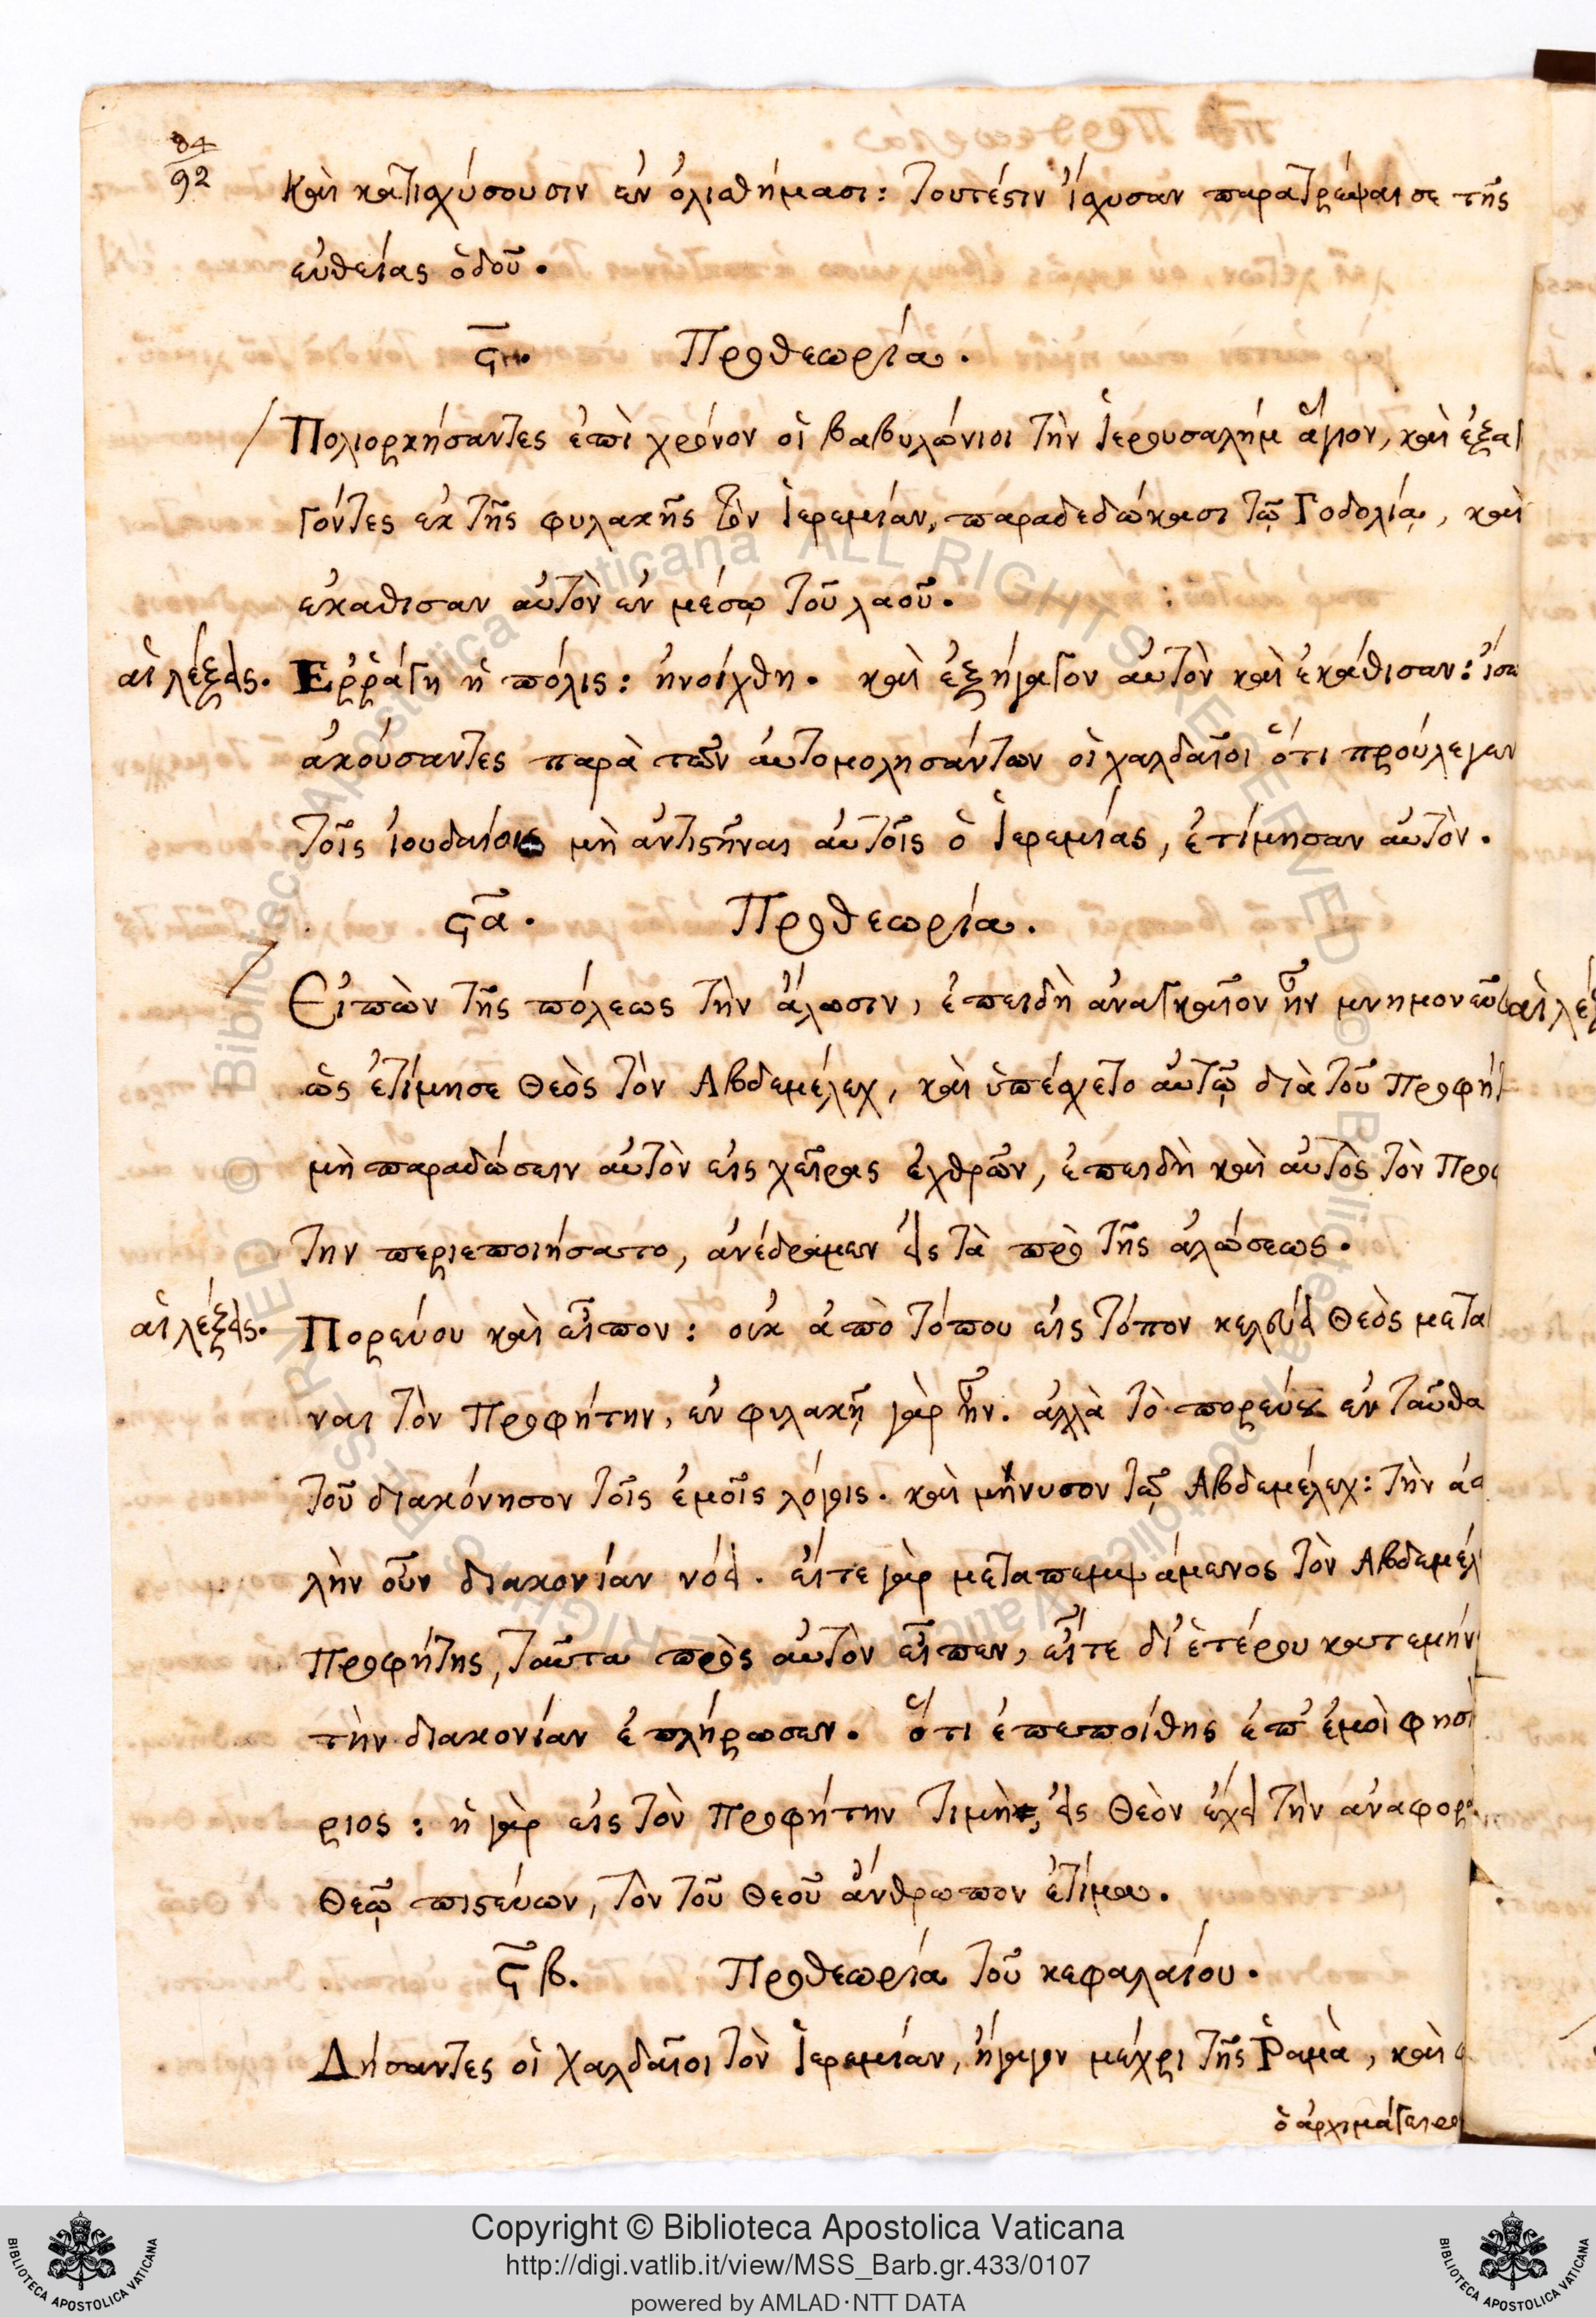 84
92
Καὶ κατισχύσουσιν ἐν ὀλισθήμασι: τουτέστιν ἴσχυσαν παρατρέψαι σε τῆς
εὐθείας ὁδοῦ.
Προθεωρία.
Πολιορκήσαντες ἐπὶ χρόνον οἱ βαβυλώνιοι τὴν Ἱερουσαλήμ ἅγιον, καὶ ἐξα
γόντες ἐκ τῆς φυλακῆς τὸν Ἱερεμίαν, παραδεδώκασι τῷ Γοδολίᾳ, καὶ
ἐκάθισαν αὐτὸν ἐν μέσῳ τοῦ λαοῦ.
αἱ λέξεις. Ἐῤῥάγη ἡ πόλις: ἠνοίχθη. καὶ ἐξήγαγον αὐτὸν καὶ ἐκάθισαν: ἴσω
ἀκούσαντες παρὰ τῶν αὐτομολησάντων οἱ χαλδαῖοι ὅτι προύλεγεν
τοῖς ἰουδαίοις μὴ ἀντιστῆναι αὐτοῖς ὁ Ἱερεμίας, ἐτίμησαν αὐτὸν.
ϟα. Προθεωρία.
Εἰπὼν τῆς πόλεως τὴν ἅλωσιν, ἐπειδὴ ἀναγκαῖον ἦν μνημονεῦ
ὡς ἐτίμησε Θεὸς τὸν Αβδεμέλεχ, καὶ ὑπέσχετο αὐτῷ διὰ τοῦ Προφήτ
μὴ παραδώσειν αὐτὸν εἰς χεῖρας ἐχθρῶν, ἐπειδὴ καὶ αὐτὸς τὸν Προ
την περιεποιήσατο, ἀνέδραμεν εἰς τὰ πρὸ τῆς ἁλώσεως.
αἱ λέξεις. Πορεύου καὶ εἶπον: οὐκ ἀπὸ τόπου εἰς τόπον κελεύει Θεὸς μετα
ναι τὸν Προφήτην, ἐν φυλακῇ γὰρ ἦν. ἀλλὰ τὸ πορεύου ἐν ταῦθα
τοῦ διακόνησον τοῖς ἐμοῖς λόγοις. καὶ μήνυσον τῷ Αβδεμέλεχ: τὴν ἁ
λὴν οὖν διακονίαν νόει. εἴτε γὰρ μεταπεμψάμενος τὸν Αβδεμέλ
Προφήτης, ταῦτα πρὸς αὐτὸν εἶπεν, εἴτε δι' ἑτέρου κατεμήν
τὴν διακονίαν ἐπλήρωσεν. ὅτι ἐπεποίθης ἐπ' ἐμοὶ φησὶ
ριος: ἡ γὰρ εἰς τὸν Προφήτην τιμὴ, εἰς Θεὸν ἔχει τὴν ἀναφορὰ
Θεῷ πιστεύων, τὸν τοῦ Θεοῦ ἄνθρωπον ἐτίμα.
ϟβ. Προθεωρία τοῦ κεφαλαίου.
Δήσαντες οἱ Χαλδαῖοι τὸν Ἱερεμίαν, ἤγαγον μέχρι τῆς Ῥαμὰ, καὶ
ὁ ἀρχιμάγειρο
Copyright © Biblioteca Apostolica Vaticana
http://digi.vatlib.it/view/MSS_Barb.gr.433/0107
powered by AMLAD·NTT DATA